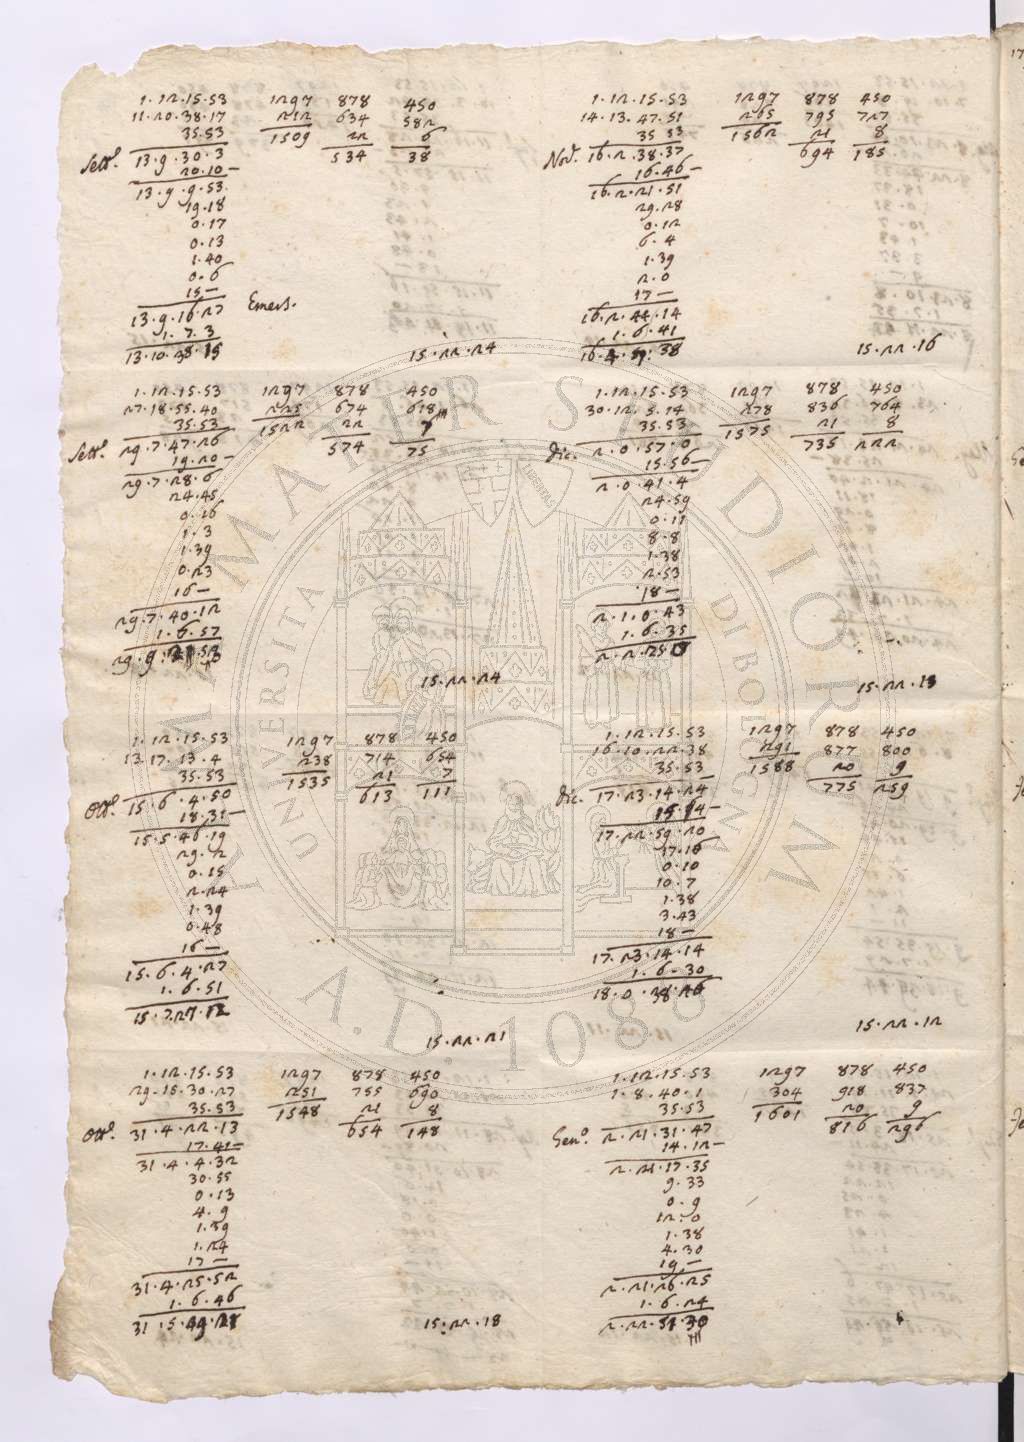 1.12.15.53 1297 878 450
11.20.38.17 212 634 582
35.53 1509 22 6
Sett.e 13.9.30.3 534 38
20.10 —
13.9.9.53.
19.18
0.17
0.13
1.40
0.6
15 —
13.9.16.27 Emers.
1.7.3
13.10.
15.22.24
1.12.15.53 1297 878 450
27.18.55.40 225 674 618
35.53 1522 22 7
Sett.e 29.7.47.26 574 75
19.20 —
29.7.28.6
24.45
0.16
1.3
1.39
0.23
16 —
29.7.40.12
1.6.57
29.9.
15.22.24
1.12.15.53 1297 878 450
13.17.13.4 238 714 654
35.53 1535 21 7
Ott.e 15.6.4.50 613 111
18.31 —
15.5.46.19
29.2
0.15
2.24
1.39
0.48
16 —
15.6.4.27
1.6.51
15.7.27.12
15.22.21
1.12.15.53 1297 878 450
29.15.30.27 251 755 690
35.53 1548 21 8
Ott.e 31.4.22.13 654 148
17.41 —
31.4.4.32
30.55
0.13
4.9
1.39
1.24
17 —
31.4.25.52
1.6.46
31.5.49.21
15.22.18
1.12.15.53 1297 878 450
14.13.47.51 265 795 727
35 53 1562 21 8
Nov.e 16.2.38.37 694 185
16.46 —
16.2.21.51
29.28
0.12
6.4
1.39
2.0
17 —
16.2.44.14
1.6.41
16.4.
15.22.16
1.12.15.53 1297 878 450
30.12.5.14 278 836 764
35.53 1575 21 8
Dic. 2.0.57.0 735 222
15.56 —
2.0.41.4
24.59
0.11
8.8
1.38
2.53
18 —
2.1.0.43
1.6.35
2.2.
15.22.13
1.12.15.53 1297 878 450
16.10.22.38 291 877 800
35.53 1588 20 9
Dic. 17.23.14.24 775 259
15.4 —
17.22.59.20
17.16
0.10
10.7
1.38
3.43
18 —
17.23.14.14
1.6.30
18.0.
15.22.12
1.12.15.53 1297 878 450
1.8.40.1 304 918 837
35.53 1601 20 9
Gen.o 2.21.31.47 816 296
14.12 —
2.21.17.35
9.33
0.9
12.0
1.38
4.30
19 —
2.21.26.25
1.6.24
2.22.51.30
ALMA MATER STUDIORUM
UNIVERSITA DI BOLOGNA
A.D. 1088